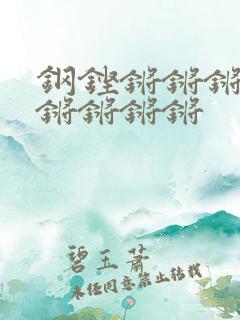 鋼鏗鏘鏘鏘
鏘鏘鏘鏘
碧玉蕭
未經同意禁止轉載